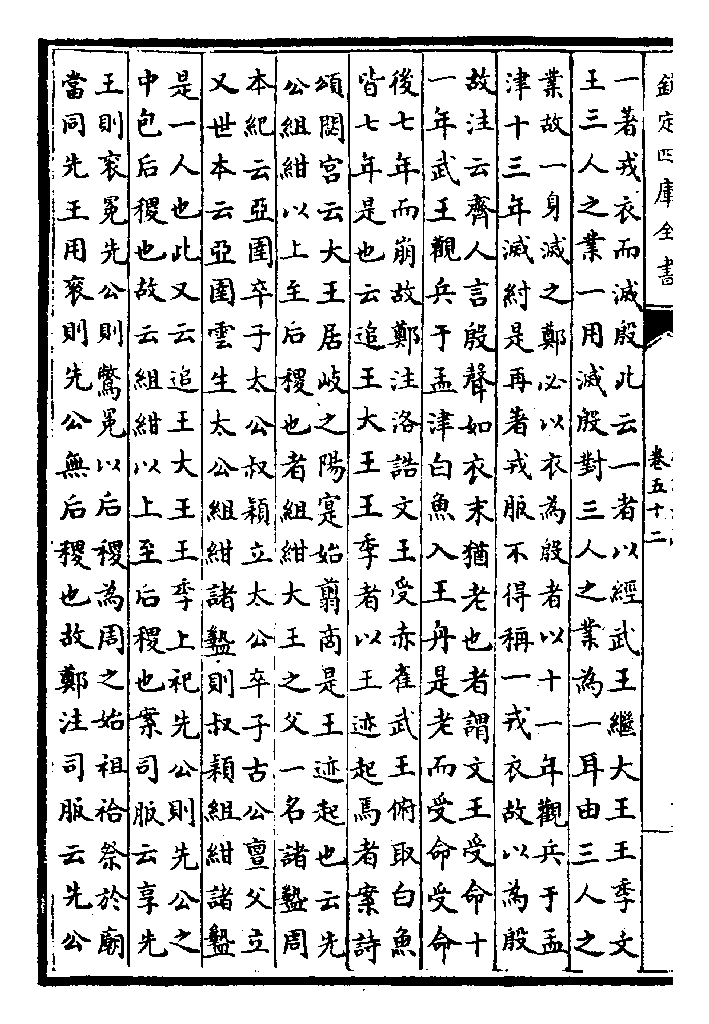 欽定四庫全書
卷五十二
一著戎衣而滅殷此云一者以經武王繼大王王季文
王三人之業一用滅殷對三人之業為一耳由三人之
業故一身滅之鄭必以衣為殷者以十一年觀兵于孟
津十三年滅紂是再著戎服不得稱一戎衣故以為殷
故注云齊人言殷聲如衣末猶老也者謂文王受命十
一年武王觀兵于孟津白魚入王舟是老而受命受命
後七年而崩故鄭注洛誥文王受赤雀武王俯取白魚
皆七年是也云追王大王王季者以王迹起焉者案詩
頌閟宮云大王居岐之陽寔始翦商是王迹起也云先
公組紺以上至后稷也者組紺大王之父一名諸盩周
本紀云亞圉卒子太公叔穎立太公卒子古公亶父立
又世本云亞圉雲生太公組紺諸盩則叔穎組紺諸盩
是一人也此又云追王大王王季上祀先公則先公之
中包后稷也故云組紺以上至后稷也案司服云享先
王則衮冕先公則鷩冕以后稷為周之始祖祫祭於廟
當同先王用衮則先公無后稷也故鄭注司服云先公